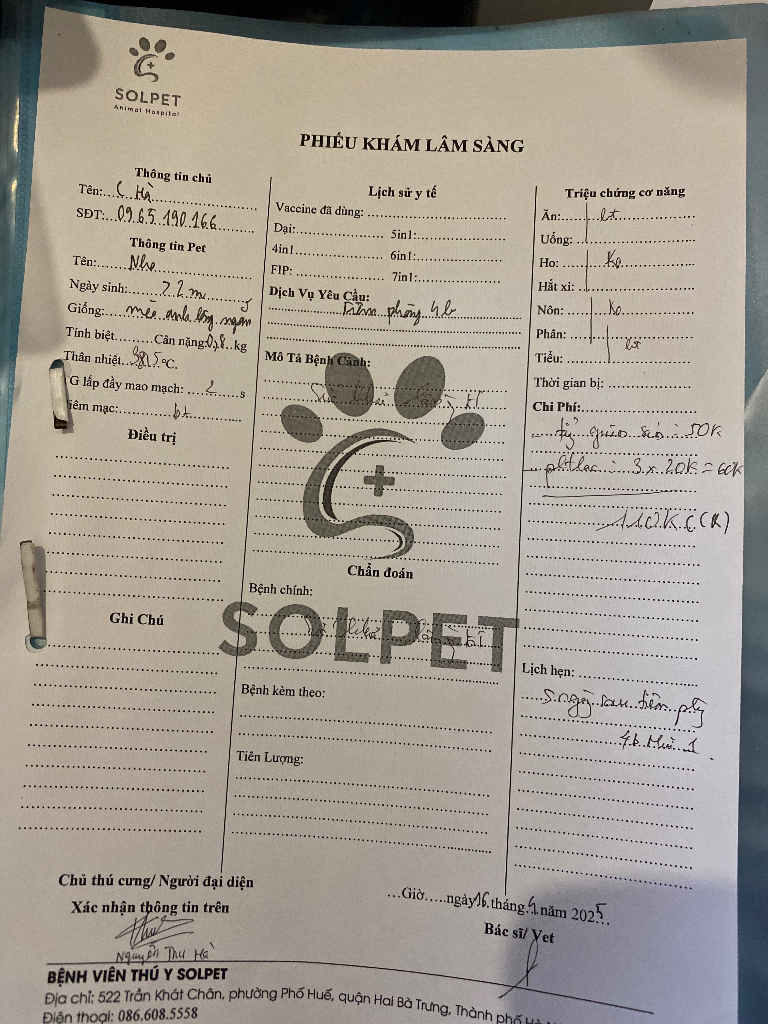 SOLPET
Animal Hospital
PHIẾU KHÁM LÂM SÀNG
Thông tin chủ
Tên: C. Hà
SĐT: 0965.190.166
Thông tin Pet
Tên: Nho
Ngày sinh: 7.2
Giống: mèo anh lông ngắn
Tính biệt........Cân nặng: 0,8 kg
Thân nhiệt: 38,5 °C.
G lấp đầy mao mạch: 2 s
iêm mạc: bt
Điều trị
Ghi Chú
Lịch sử y tế
Vaccine đã dùng:
Dại: 5in1:
4in1 6in1:
FIP: 7in1:
Dịch Vụ Yêu Cầu:
Tiêm phòng 4b
Mô Tả Bệnh Cảnh:
Chẩn đoán
Bệnh chính:
SOLPET
Bệnh kèm theo:
Tiên Lượng:
Triệu chứng cơ năng
Ăn: bt
Uống:
Ho: Ko
Hắt xì:
Nôn: Ko
Phân:
bt
Tiểu:
Thời gian bị:
Chi Phí:
tẩy giun sán: 50k
: 3 x 20k = 60k
110K
Lịch hẹn:
5 ngày sau tiêm
4b Mũi 1
Chủ thú cưng/ Người đại diện
Xác nhận thông tin trên
Nguyễn Thu Hà
...Giờ.....ngày 16 tháng 4 năm 2025
Bác sĩ/ Vet
BỆNH VIỆN THÚ Y SOLPET
Địa chỉ: 522 Trần Khát Chân, phường Phố Huế, quận Hai Bà Trưng, Thành phố
Điện thoại: 086.608.5558